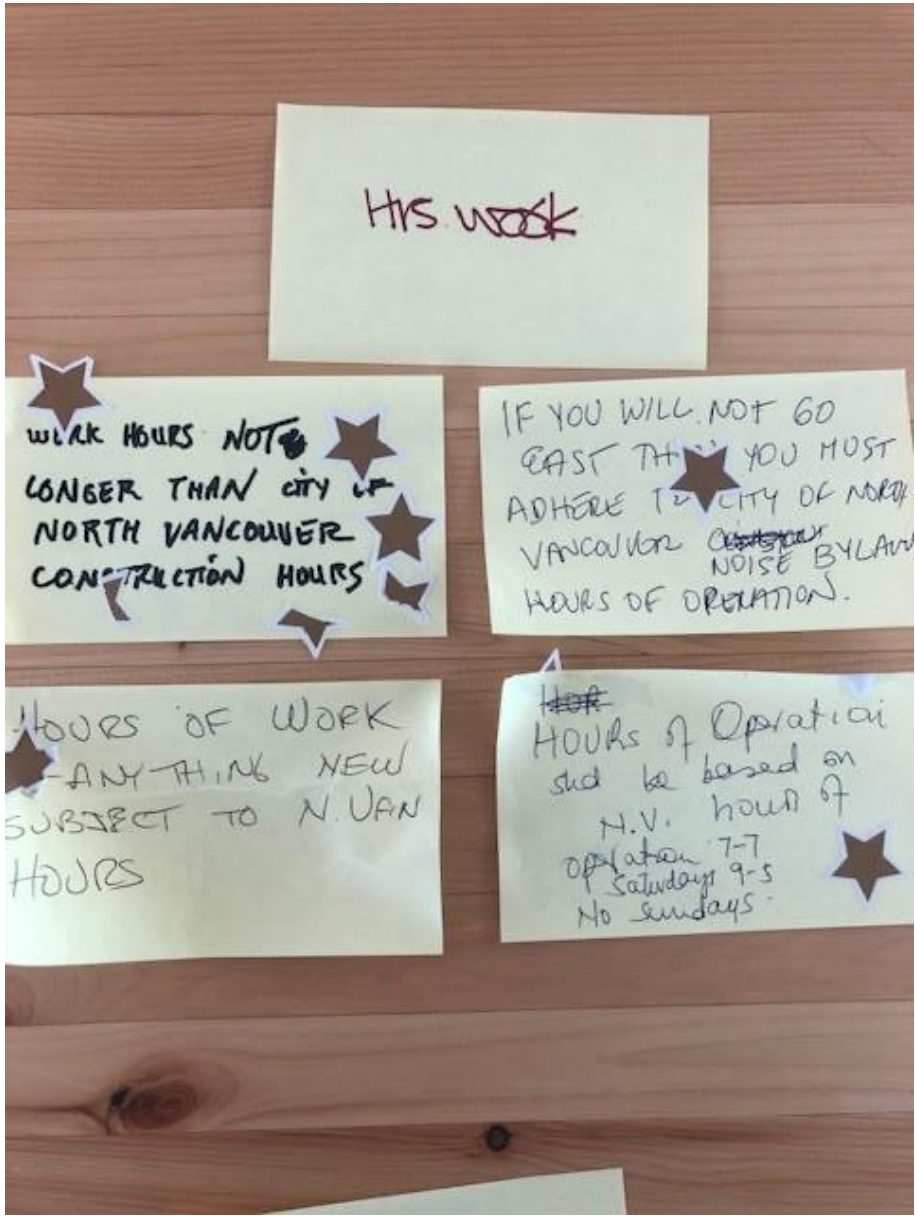 Hrs. work
WORK HOURS NOT
LONGER THAN CITY OF
NORTH VANCOUVER
CONSTRUCTION HOURS
IF YOU WILL NOT GO
EAST THEN YOU MUST
ADHERE TO CITY OF NORTH
VANCOUVER
NOISE BYLAW
HOURS OF OPERATION.
HOURS OF WORK
- ANYTHING NEW
SUBJECT TO N.VAN
HOURS
HOURS of Operation
shd be based on
N.V. hour of
operation 7-7
Saturdays 9-5
No Sundays.